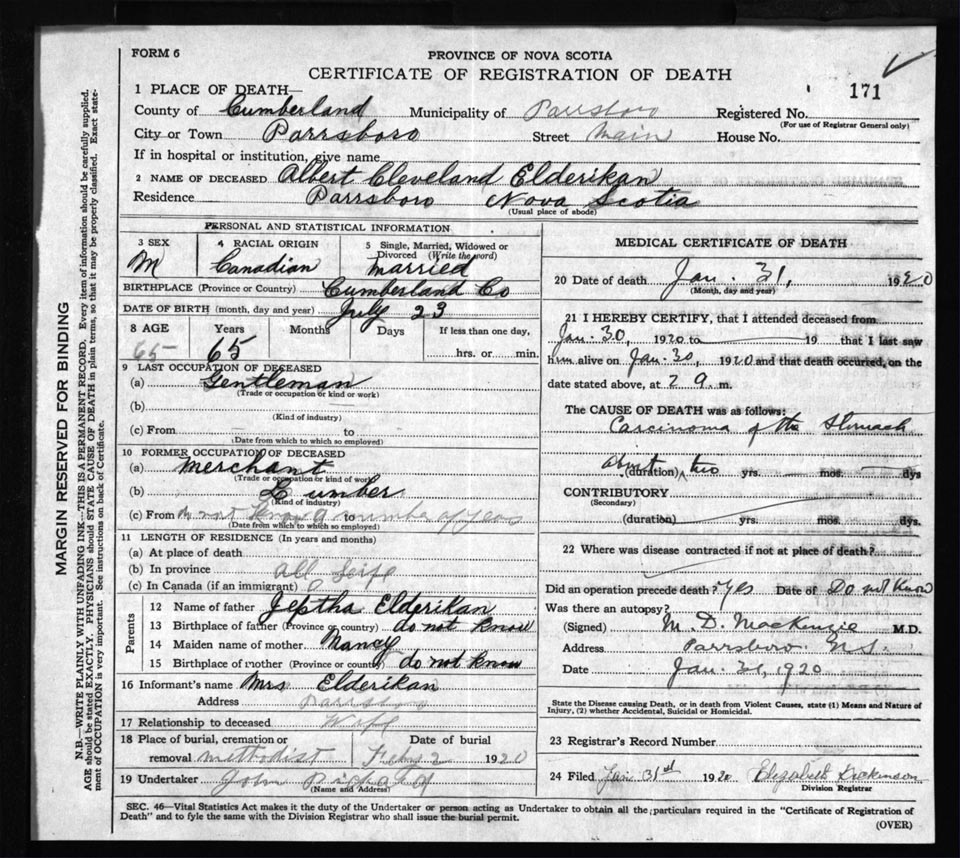 FORM 6
PROVINCE OF NOVA SCOTIA
CERTIFICATE OF REGISTRATION OF DEATH
171
1 PLACE OF DEATH—
County of Cumberland Municipality of Parrsboro Registered No.
(For use of Registrar General only)
City or Town Parrsboro Street Main House No.
If in hospital or institution, give name
2 NAME OF DECEASED Albert Cleveland Elderikan
Residence Parrsboro Nova Scotia
(Usual place of abode)
PERSONAL AND STATISTICAL INFORMATION
3 SEX 4 RACIAL ORIGIN 5 Single, Married, Widowed or Divorced (Write the word)
M Canadian Married
BIRTHPLACE (Province or Country) Cumberland Co
DATE OF BIRTH (month, day and year) July 23
8 AGE Years Months Days If less than one day,
65 65 hrs. or min.
9 LAST OCCUPATION OF DECEASED
(a) Gentleman
(Trade or occupation or kind or work)
(b)
(Kind of industry)
(c) From to
(Date from which to which so employed)
10 FORMER OCCUPATION OF DECEASED
(a) Merchant
(Trade or occupation or kind of work)
(b) Lumber
(Kind of industry)
(c) From do not know to a number of years
(Date from which to which so employed)
11 LENGTH OF RESIDENCE (In years and months)
(a) At place of death
(b) In province all life
(c) In Canada (if an immigrant)
Parents
12 Name of father Jeptha Elderikan
13 Birthplace of father (Province or country) do not know
14 Maiden name of mother Nancy
15 Birthplace of mother (Province or country) do not know
16 Informant's name Mrs Elderikan
Address Parrsboro
17 Relationship to deceased Wife
18 Place of burial, cremation or Date of burial
removal Methodist Feby 2 1920
19 Undertaker John
(Name and Address)
MEDICAL CERTIFICATE OF DEATH
20 Date of death Jan. 31, 1920
(Month, day and year)
21 I HEREBY CERTIFY, that I attended deceased from
Jan. 30, 1920 to 19 that I last saw
him alive on Jan. 30, 1920 and that death occurred, on the
date stated above, at 2 9. m.
The CAUSE OF DEATH was as follows:
Carcinoma of the Stomach
about (duration) two yrs. mos. dys
CONTRIBUTORY
(Secondary)
(duration) yrs. mos. dys.
22 Where was disease contracted if not at place of death?
Did an operation precede death? Yes Date of Do not know
Was there an autopsy?
(Signed) M. D. MacKenzie M.D.
Address Parrsboro N.S.
Date Jan. 31, 1920
State the Disease causing Death, or in death from Violent Causes, state (1) Means and Nature of
Injury, (2) whether Accidental, Suicidal or Homicidal.
23 Registrar's Record Number
24 Filed Jan 31st 1920 Elizabeth Dickinson
Division Registrar
SEC. 46—Vital Statistics Act makes it the duty of the Undertaker or person acting as Undertaker to obtain all the particulars required in the "Certificate of Registration of
Death" and to fyle the same with the Division Registrar who shall issue the burial permit.
(OVER)
MARGIN RESERVED FOR BINDING
N.B.—WRITE PLAINLY WITH UNFADING INK—THIS IS A PERMANENT RECORD. Every item of information should be carefully supplied.
AGE should be stated EXACTLY. PHYSICIANS should STATE CAUSE OF DEATH in plain terms, so that it may be properly classified. Exact statement of OCCUPATION is very important. See instructions on back of Certificate.